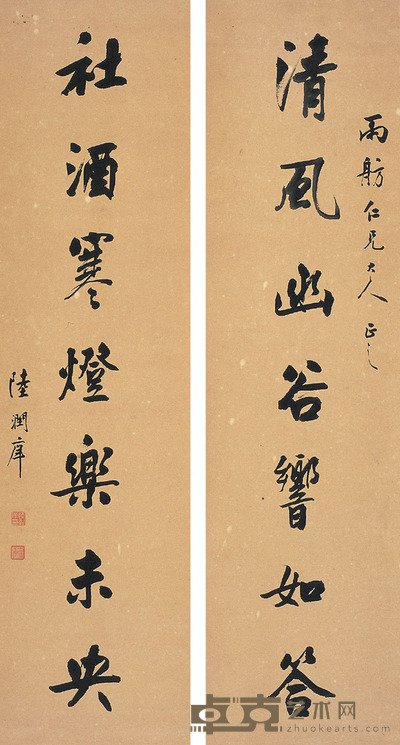 清風幽谷響如答
雨舫仁兄大人正之
社酒寒燈樂未央
陸潤庠
卓克艺术网
zhuokearts.com